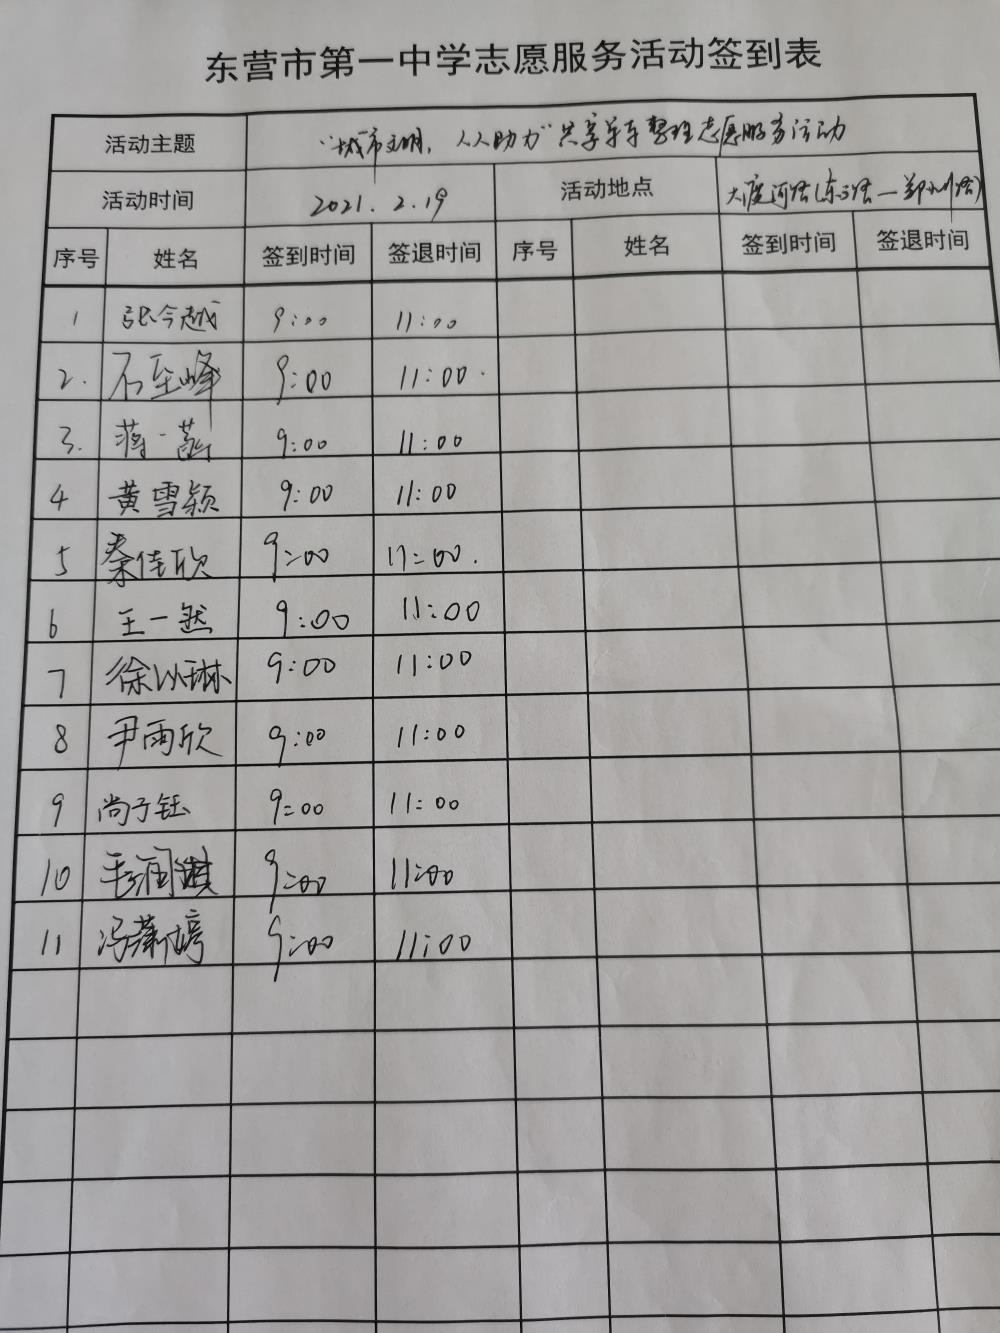 东营市第一中学志愿服务活动签到表
活动主题 "城市文明，人人助力"共享单车整理志愿服务活动
活动时间 2021.2.19 活动地点 大渡河路(东三路—郑州路)
序号 姓名 签到时间 签退时间 序号 姓名 签到时间 签退时间
1 张今越 9:00 11:00
2. 石至峰 9:00 11:00.
3. 蒋一菡 9:00 11:00
4 黄雪颖 9:00 11:00
5 秦佳欣 9:00 11:00.
6 王一然 9:00 11:00
7 徐以琳 9:00 11:00
8 尹雨欣 9:00 11:00
9 尚子钰 9:00 11:00
10 毛润淇 9:00 11:00
11 冯萧婷 9:00 11:00